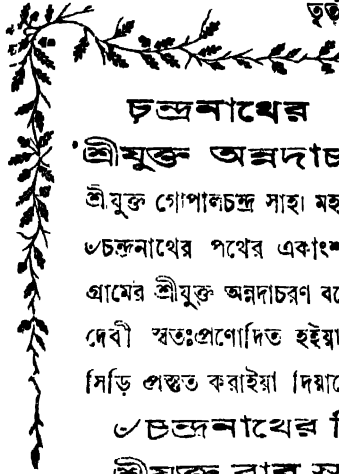 চন্দ্রনাথের
শ্রীযুক্ত অন্নদাচ
শ্রীযুক্ত গোপালচন্দ্র সাহা মহ
৺চন্দ্রনাথের পথের একাংশ
গ্রামের শ্রীযুক্ত অন্নদাচরণ বে
দেবী স্বতঃপ্রণোদিত হইয়া
সিড়ি প্রস্তুত করাইয়া দিয়াছে
৺চন্দ্রনাথের